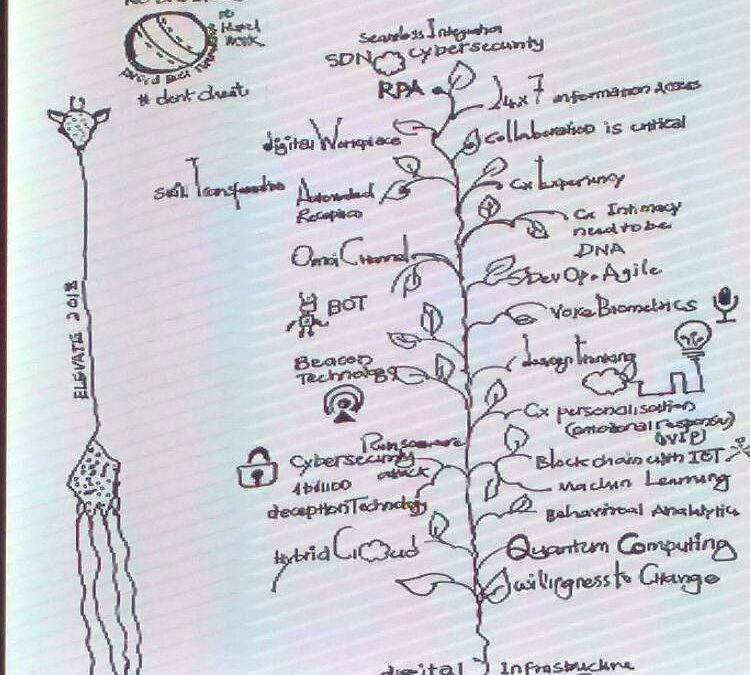 no
Hard
work
# dont cheat
ELEVATE 2018
Seamless Integration
SDN Cybersecurity
RPA
24x7 information access
digital Workplace
Collaboration is critical
Skill
Automated
Reception
Cx
Cx Intimacy
need to be
DNA
Omni Channel
DevOps Agile
BOT
Voice Biometrics
Beacon
Technology
design thinking
Cx personalisation
(emotional response)
(VIP)
Ransomware
Cybersecurity
attack
Block chain with IOT
Machin Learning
deception Technology
Behavioral Analytics
Hybrid Cloud
Quantum Computing
willingness to Change
digital Infrastructure